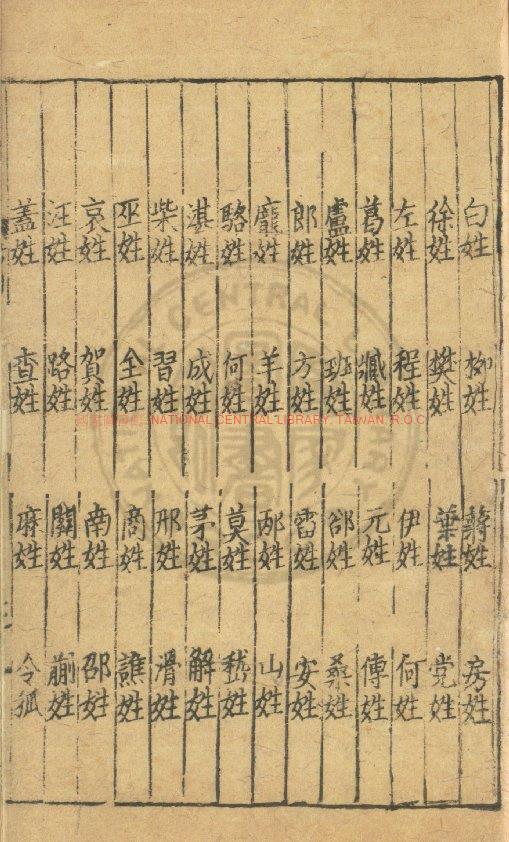 白姓 柳姓 蔣姓 房姓
徐姓 樊姓 葉姓 党姓
左姓 程姓 伊姓 何姓
葛姓 臧姓 元姓 傅姓
盧姓 班姓 郤姓 桑姓
郎姓 方姓 雷姓 安姓
龐姓 羊姓 邴姓 山姓
駱姓 何姓 莫姓 嵇姓
湛姓 成姓 茅姓 解姓
柴姓 習姓 邢姓 滑姓
巫姓 全姓 商姓 譙姓
哀姓 賀姓 南姓 邵姓
汪姓 路姓 關姓 蒯姓
蓋姓 查姓 麻姓 令狐
NATIONAL CENTRAL LIBRARY, TAIWAN, R.O.C